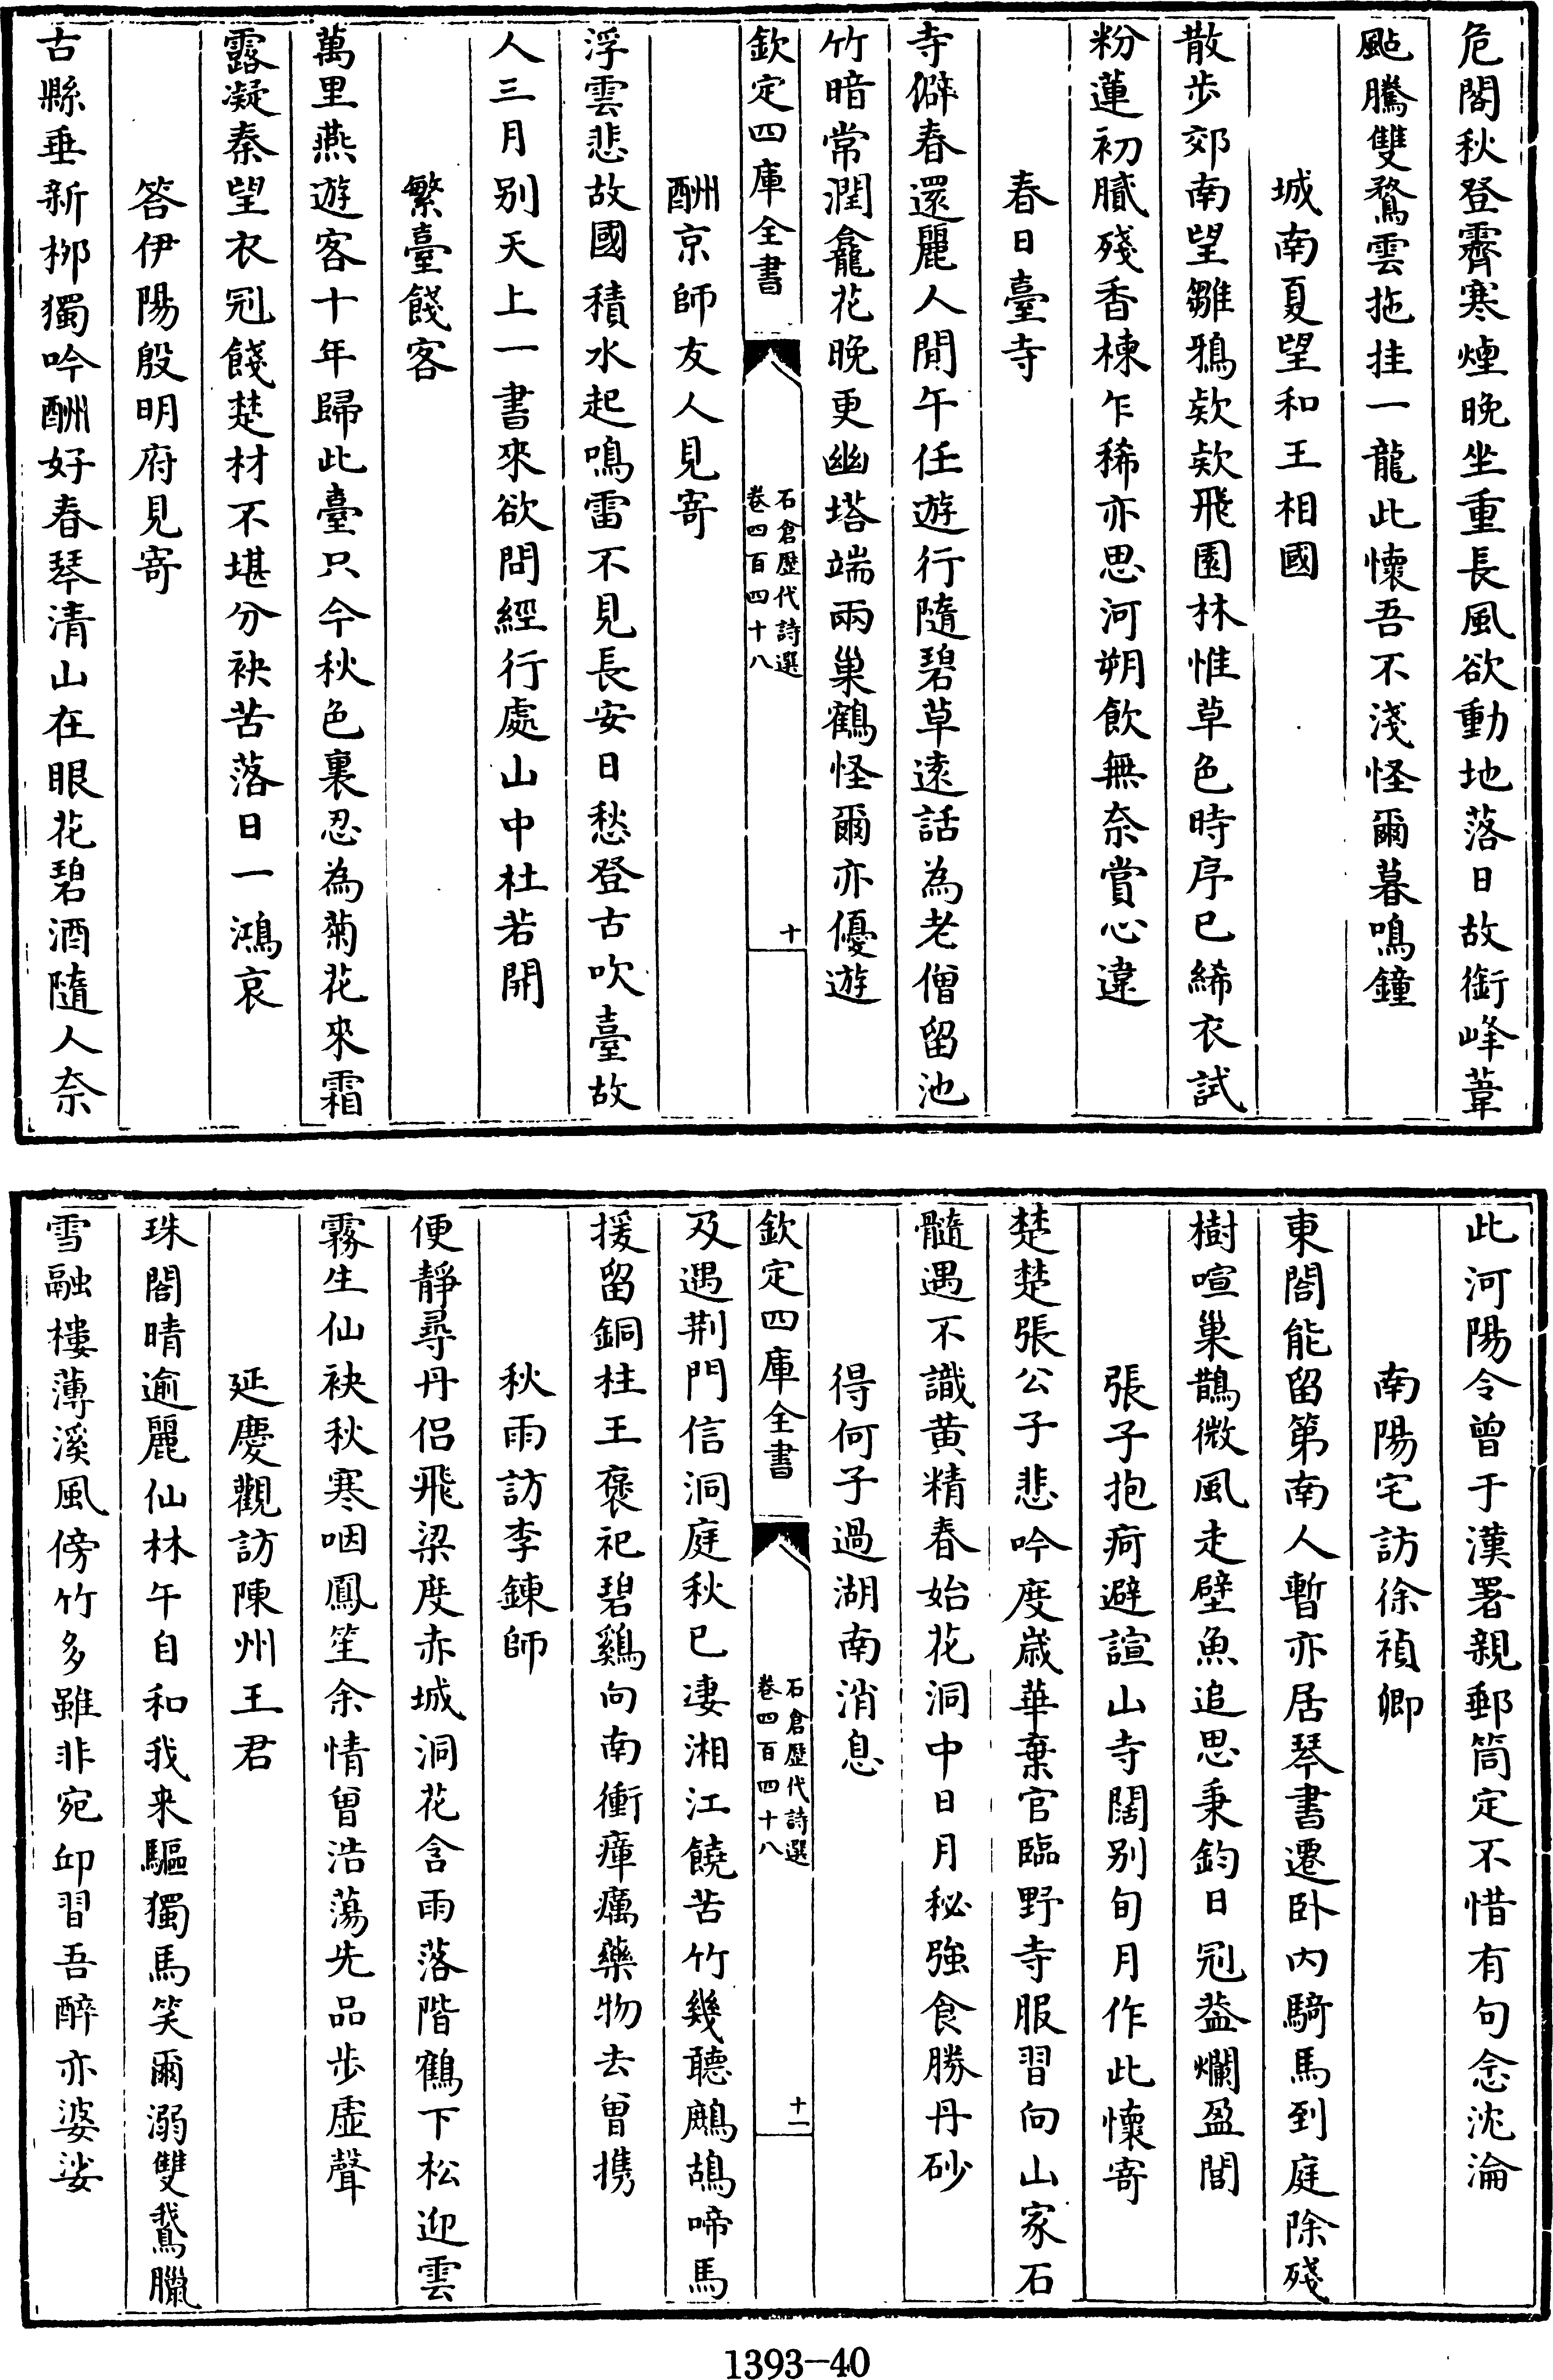 危閣秋登霽寒煙晚坐重長風欲動地落日故銜峰葦
颭騰雙鶩雲拖挂一龍此懷吾不淺怪爾暮鳴鐘
城南夏望和王相國
散歩郊南望雛鴉欵欵飛園林惟草色時序已絺衣試
粉蓮初膩殘香楝乍稀亦思河朔飲無奈賞心違
春日臺寺
寺僻春還麗人閒午任遊行隨碧草逺話為老僧留池
竹暗常潤龕花晚更幽塔端兩巢鶴怪爾亦優遊
欽定四庫全書
石倉歴代詩選
卷四百四十八
十
酬京師友人見寄
浮雲悲故國積水起鳴雷不見長安日愁登古吹臺故
人三月别天上一書來欲問經行處山中杜若開
繁臺餞客
萬里燕遊客十年歸此臺只今秋色裏忍為菊花來霜
露凝秦望衣冠餞楚材不堪分袂苦落日一鴻哀
答伊陽殷明府見寄
古縣垂新栁獨吟酬好春琴清山在眼花碧酒隨人奈
此河陽令曾于漢署親郵筒定不惜有句念沈淪
南陽宅訪徐禎卿
東閣能留第南人暫亦居琴書遷卧内騎馬到庭除殘
樹喧巢鵲微風走壁魚追思秉鈞日冠葢爛盈閭
張子抱疴避諠山寺闊别旬月作此懷寄
楚楚張公子悲吟度嵗華棄官臨野寺服習向山家石
髓遇不識黄精春始花洞中日月秘強食勝丹砂
得何子過湖南消息
欽定四庫全書
石倉歴代詩選
卷四百四十八
十一
及遇荆門信洞庭秋已凄湘江饒苦竹幾聽鷓鴣啼馬
援留銅柱王褒祀碧鷄向南衝瘴癘藥物去曾携
秋雨訪李鍊師
便靜尋丹侣飛梁度赤城洞花含雨落階鶴下松迎雲
霧生仙袂秋寒咽鳳笙余情曾浩蕩先品歩虚聲
延慶觀訪陳州王君
珠閣晴逾麗仙林午自和我来驅獨馬笑爾溺雙鵞臘
雪融樓薄溪風傍竹多雖非宛邱習吾醉亦婆娑
1393-40